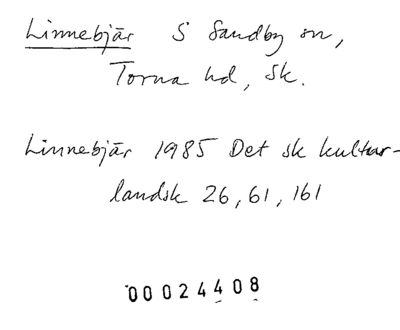 Linnebjär S Sandby sn,
Torna hd, Sk.
Linnebjär 1985 Det sk kultur-
landsk 26, 61, 161
00024408